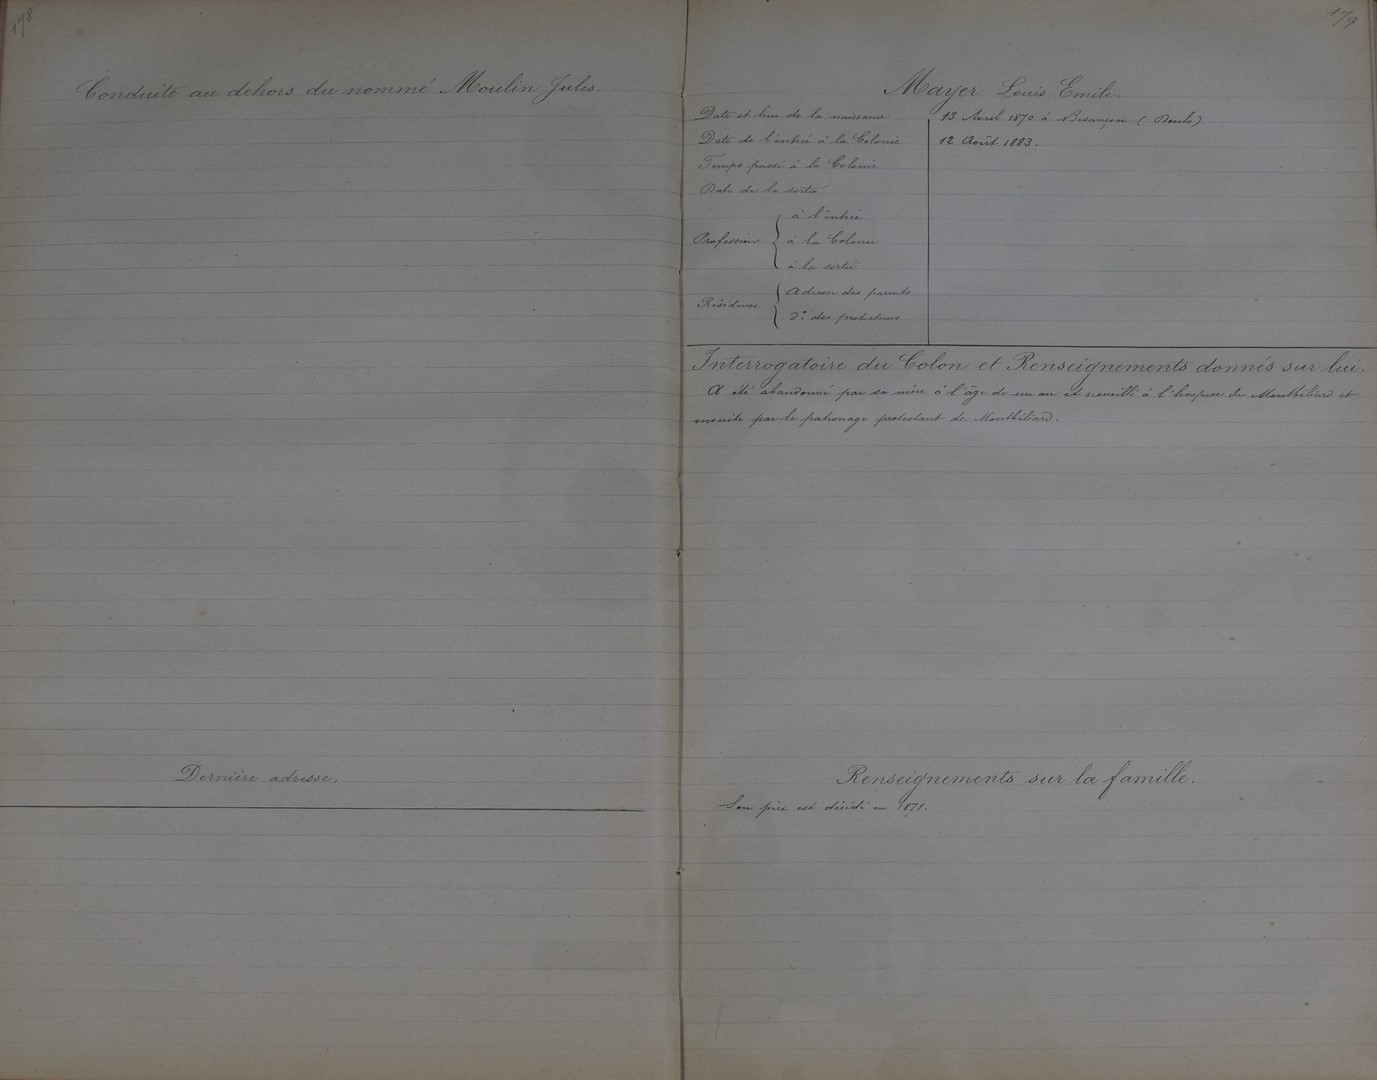 178
Conduite au dehors du nommé Moulin Jules.
Dernière adresse.
179
Mayer Louis Emile.
Date et lieu de la naissance 13 Avril 1870 à Besançon (Doubs)
Date de l'entrée à la Colonie 12 Août 1883.
Temps passé à la Colonie
Date de la sortie
Profession
à l'entrée
à la Colonie
à la sortie
Résidence
Adresse des parents
d° des protecteurs
Interrogatoire du Colon et Renseignements donnés sur lui.
A été abandonné par sa mère à l'âge de un an et recueilli à l'hospice de Montbéliard et
ensuite par le patronage protestant de Montbéliard.
Renseignements sur la famille.
Son père est décédé en 1871.